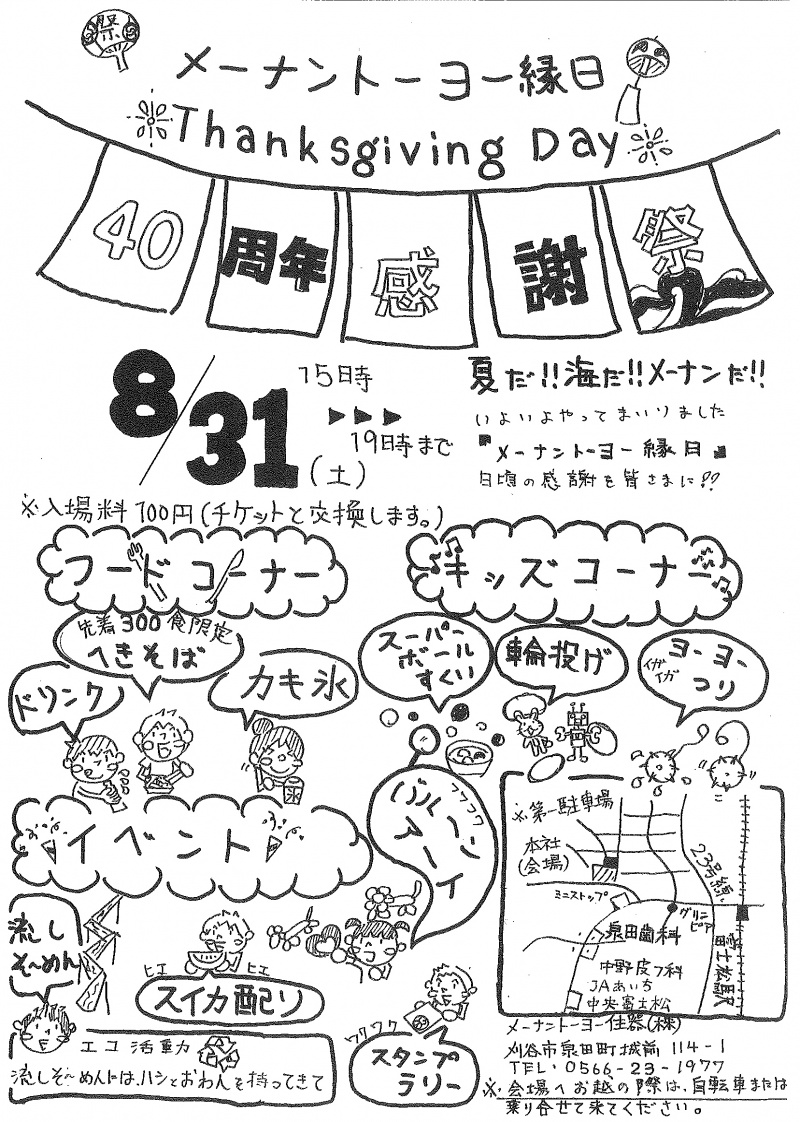 祭
メーナントーヨー縁日
Thanksgiving Day
40 周年 感 謝 祭
8/31(土)
15時
19時まで
夏だ!!海だ!!メーナンだ!!
いよいよやってまいりました
『メーナントーヨー縁日』
日頃の感謝を皆さまに!!
※入場料100円(チケットと交換します。)
フードコーナー
キッズコーナー
先着300食限定
へきそば
ドリンク
カキ氷
氷
スーパー
ボール
すくい
輪投げ
ヨーヨー
イガイガ
つり
イベント
バルーン
アート
流し
そ〜めん
ヒエ ヒエ
スイカ配り
ワクワク
スタンプ
ラリー
エコ活動
流しそ〜めんには、ハシとおわんを持ってきて
※第一駐車場
本社
(会場)
ミニストップ
23号線
グリンピア
泉田歯科
中野皮フ科
JAあいち
中央富士松
富士松駅
メーナントーヨー住器(株)
刈谷市泉田町城前 114-1
TEL・0566-23-1977
※会場へお越の際は、自転車または
乗り合せて来てください。